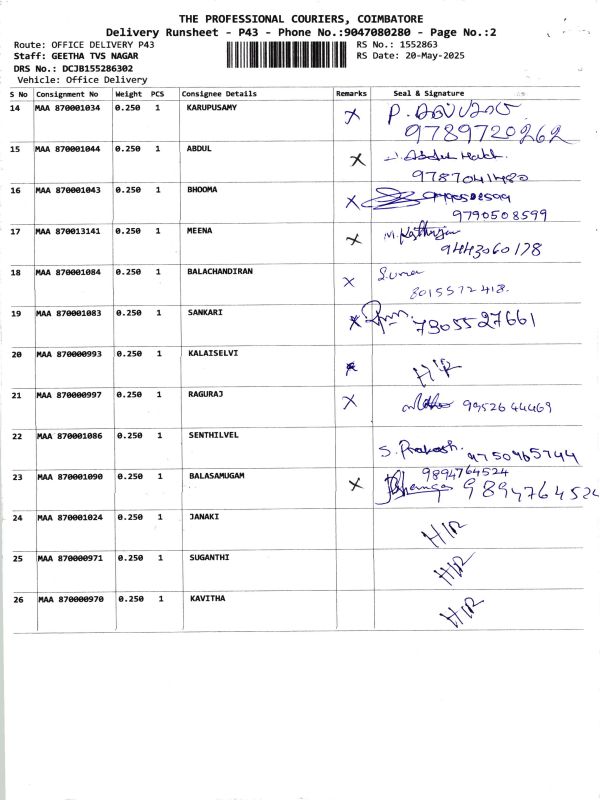 THE PROFESSIONAL COURIERS, COIMBATORE
Delivery Runsheet - P43 - Phone No.:9047080280 - Page No.:2
Route: OFFICE DELIVERY P43 RS No.: 1552863
Staff: GEETHA TVS NAGAR RS Date: 20-May-2025
DRS No.: DCJB155286302
Vehicle: Office Delivery
S No Consignment No Weight PCS Consignee Details Remarks Seal & Signature
14 MAA 870001034 0.250 1 KARUPUSAMY X P.
9789720262
15 MAA 870001044 0.250 1 ABDUL X Abdul
9787041480
16 MAA 870001043 0.250 1 BHOOMA X
9790508599
17 MAA 870013141 0.250 1 MEENA X M.
9443060178
18 MAA 870001084 0.250 1 BALACHANDIRAN X Suma
8015572418.
19 MAA 870001083 0.250 1 SANKARI X 7305527661
20 MAA 870000993 0.250 1 KALAISELVI X H/R
21 MAA 870000997 0.250 1 RAGURAJ X 9952644469
22 MAA 870001086 0.250 1 SENTHILVEL S. Prakash. 9750965744
23 MAA 870001090 0.250 1 BALASAMUGAM X 9894764524
9894764524
24 MAA 870001024 0.250 1 JANAKI H/R
25 MAA 870000971 0.250 1 SUGANTHI H/R
26 MAA 870000970 0.250 1 KAVITHA H/R